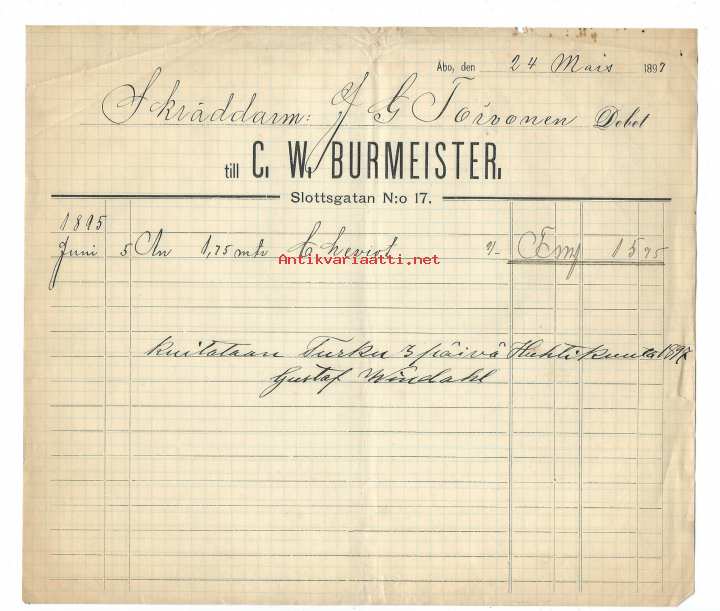 Åbo, den 24 Mars 1897
Skräddarm: J G Toivonen Debet
till C. W. BURMEISTER.
Slottsgatan N:o 17.
1895
Juni 5 An 1,75 mtr Cheviot 9/- Fmk 15 75
Antikvariaatti.net
kuitataan Turku 3 päivä Huhtikuuta 1897
Gustaf Windahl